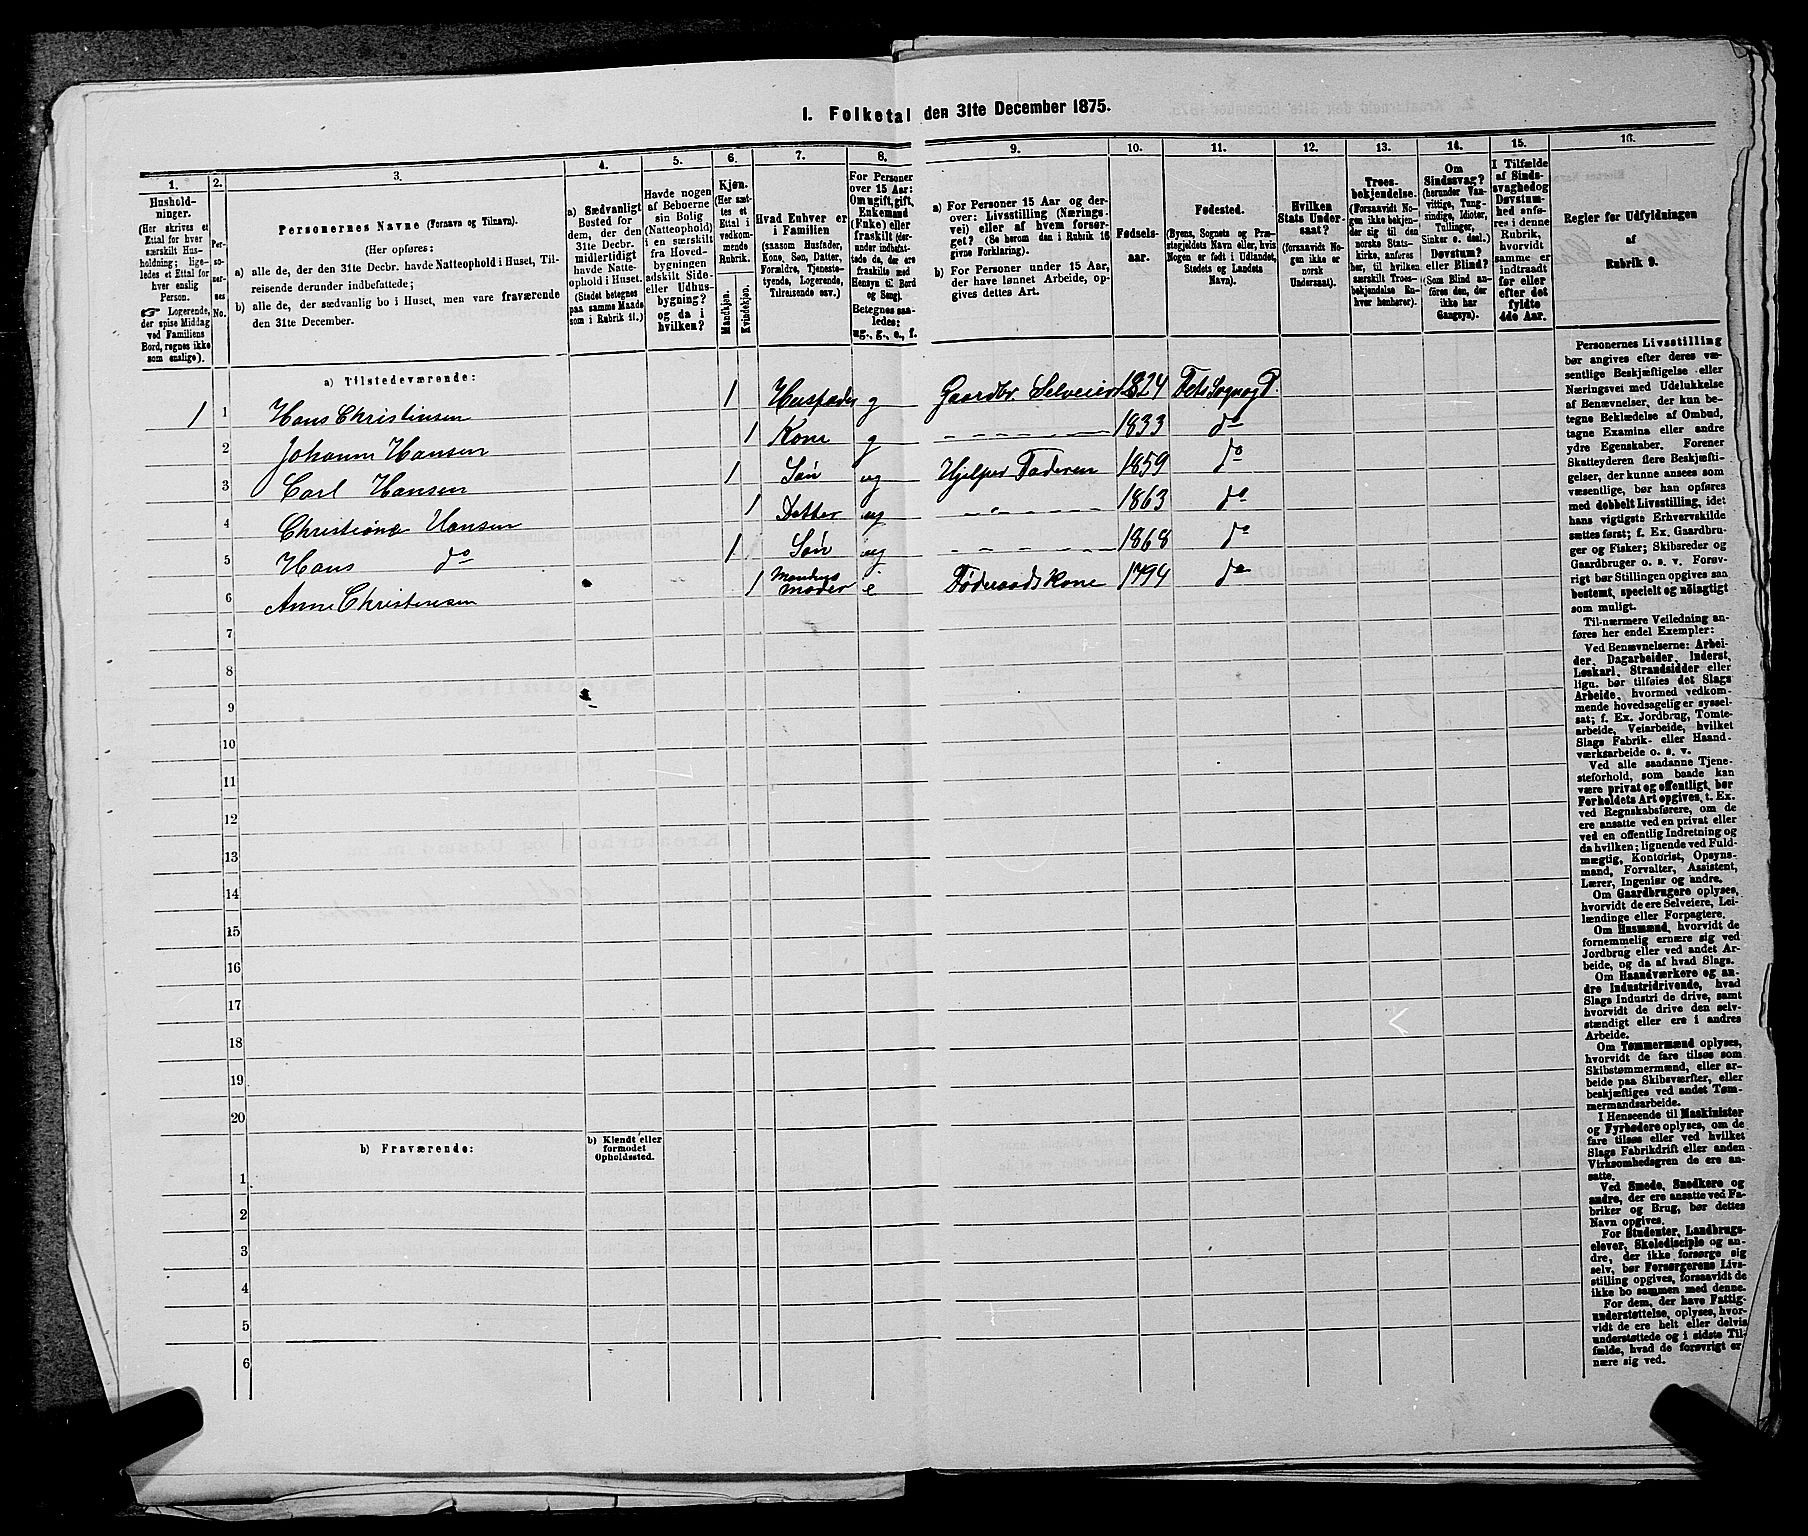 1. Folketal den 31te December 1875.
1.
Husholdninger.
(Her skrives et
Ettal for hver
særskilt Husholdning; ligeledes et Ettal for
hver enslig
Person.
☞ Logerende,
der spise Middag
ved Familiens
Bord, regnes ikke
som enslige).
2.
Personernes
No.
3.
Personernes Navne (Fornavn og Tilnavn).
(Her opføres:
a) alle de, der den 31te Decbr. havde Natteophold i Huset, Tilreisende derunder indbefattede;
b) alle de, der sædvanlig bo i Huset, men vare fraværende
den 31te December.
4.
a) Sædvanligt
Bosted for
dem, der den
31te Decbr.
midlertidigt
havde Natteophold i Huset.
(Stedet betegnes
paa samme Maade
som i Rubrik 11.)
5.
Havde nogen
af Beboerne
sin Bolig
(Natteophold)
i en særskilt
fra Hovedbygningen
adskilt Side-
eller Udhusbygning?
og da i
hvilken?
6.
Kjøn.
(Her sættes et
Ettal i
vedkommende
Rubrik.
Mandkjøn.
Kvindekjøn.
7.
Hvad Enhver er
i Familien
(saasom Husfader,
Kone, Søn, Datter,
Forældre, Tjenestetyende, Logerende,
Tilreisende osv.)
8.
For Personer
over 15 Aar:
Om ugift, gift,
Enkemand
(Enke) eller
fraskilt (derunder indbefattede de, der ere
fraskilte med
Hensyn til Bord
og Seng).
Betegnes saaledes:
ug., g., e., f.
9.
a) For Personer 15 Aar og derover: Livsstilling (Næringsvei) eller af hvem forsørget? (Se herom den i Rubrik 16
givne Forklaring).
b) For Personer under 15 Aar,
der have lønnet Arbeide, opgives dettes Art.
10.
Fødselsaar.
11.
Fødested.
(Byens, Sognets og Præstegjeldets Navn eller, hvis
Nogen er født i Udlandet,
Stedets og Landets
Navn).
12.
Hvilken
Stats Undersaat?
(forsaavidt Nogen ikke er
norsk
Undersaat).
13.
Troesbekjendelse.
(Forsaavidt Nogen ikke bekjender sig til den
norske Statskirke, anføres
her, til hvilken
særskilt Troesbekjendelse Enhver henhører).
14.
Om
Sindssvag?
(herunder Vanvittige, Tungsindige, Idioter,
Sinker o. desl.)
Døvstum?
eller Blind?
(Som Blind anføres den, der
ikke har
Gangsyn).
15.
I Tilfælde
af Sindssvaghed og
Døvstumhed anføres i denne
Rubrik,
hvorvidt
samme er
indtraadt
før eller
efter det
fyldte
4de Aar.
16.
Regler for Udfyldningen
af
Rubrik 9.
a) Tilstedeværende:
1 1 Hans Christinsen 1 Husfader g Gaardbr. Selveier 1824 Fets Sogn og P.
2 Johanne Hansen 1 Kone g 1833 do
3 Carl Hansen 1 Søn ug Hjelper Faderen 1859 do
4 Christiane Hansen 1 Datter ug 1863 do
5 Hans do 1 Søn ug 1868 do
6 Anne Christensen 1 Mandens Moder e Føderaadskone 1794 do
7
8
9
10
11
12
13
14
15
16
17
18
19
20
b) Fraværende:
b) Kjendt eller
formodet
Opholdssted.
1
2
3
4
5
6
Personernes Livsstilling
bør angives efter deres væsentlige Beskjæftigelse eller
Næringsvei med Udelukkelse
af Benævnelser, der kun betegne Beklædelse af Ombud,
tagne Examina eller andre
ydre Egenskaber. Forener
Skatteyderen flere Beskjæftigelser, der kunne ansees som
væsentlige, bør han opføres
med dobbelt Livsstilling, idet
hans vigtigste Erhvervskilde
sættes først; f. Ex. Gaardbruger og Fisker; Skibsreder og
Gaardbruger o. s. v. Forøvrigt bør Stillingen opgives saa
bestemt, specielt og nøiagtigt
som muligt.
Til nærmere Veiledning anføres her endel Exempler:
Ved Benævnelserne: Arbeider, Dagarbeider, Inderst,
Løskarl, Strandsidder eller
lign. bør tilføies det Slags
Arbeide, hvormed vedkommende hovedsagelig er sysselsat; f. Ex. Jordbrug, Tomtearbeide, Veiarbeide, hvilket
Slags Fabrik- eller Haandværksarbeide o. s. v.
Ved alle saadanne Tjenesteforhold, som baade kan
være privat og offentligt, bør
Forholdets Art opgives, t. Ex.
ved Regnskabsførere, om de
ere ansatte ved en privat eller
ved en offentlig Indretning og
da hvilken; lignende ved Fuldmægtig, Kontorist, Opsynsmand, Forvalter, Assistent,
Lærer, Ingeniør og andre.
Om Gaardbrugere oplyses,
hvorvidt de ere Selveiere, Leilændinge eller Forpagtere.
Om Husmænd, hvorvidt de
fornemmelig ernære sig ved
Jordbrug eller ved andet Arbeide, og da af hvad Slags.
Om Haandværkere og andre Industridrivende, hvad
Slags Industri de drive, samt
hvorvidt de drive den selvstændigt eller ere i andres
Arbeide.
Om Tømmermænd oplyses,
hvorvidt de fare tilsøs som
Skibstømmermænd, eller arbeide paa Skibsværfter, eller
beskjæftiges ved andet Tømmermandsarbeide.
I Henseende til Maskinister
og Fyrbødere oplyses, om de
fare tilsøs eller ved hvilket
Slags Fabrikdrift eller anden
Virksomhedsgren de ere ansatte.
Ved Smede, Snedkere og
andre, der ere ansatte ved Fabriker og Brug, bør dettes
Navn opgives.
For Studenter, Landbrugselever, Skoledisciple og andre, der ikke forsørge sig
selv, bør Forsørgerens Livsstilling opgives, forsaavidt de
ikke bo sammen med denne.
For dem, der have Fattigunderstøttelse, oplyses, hvorvidt de ere helt eller delvis
understøttede og i sidste Tilfælde, hvad de forøvrigt ernære sig ved.